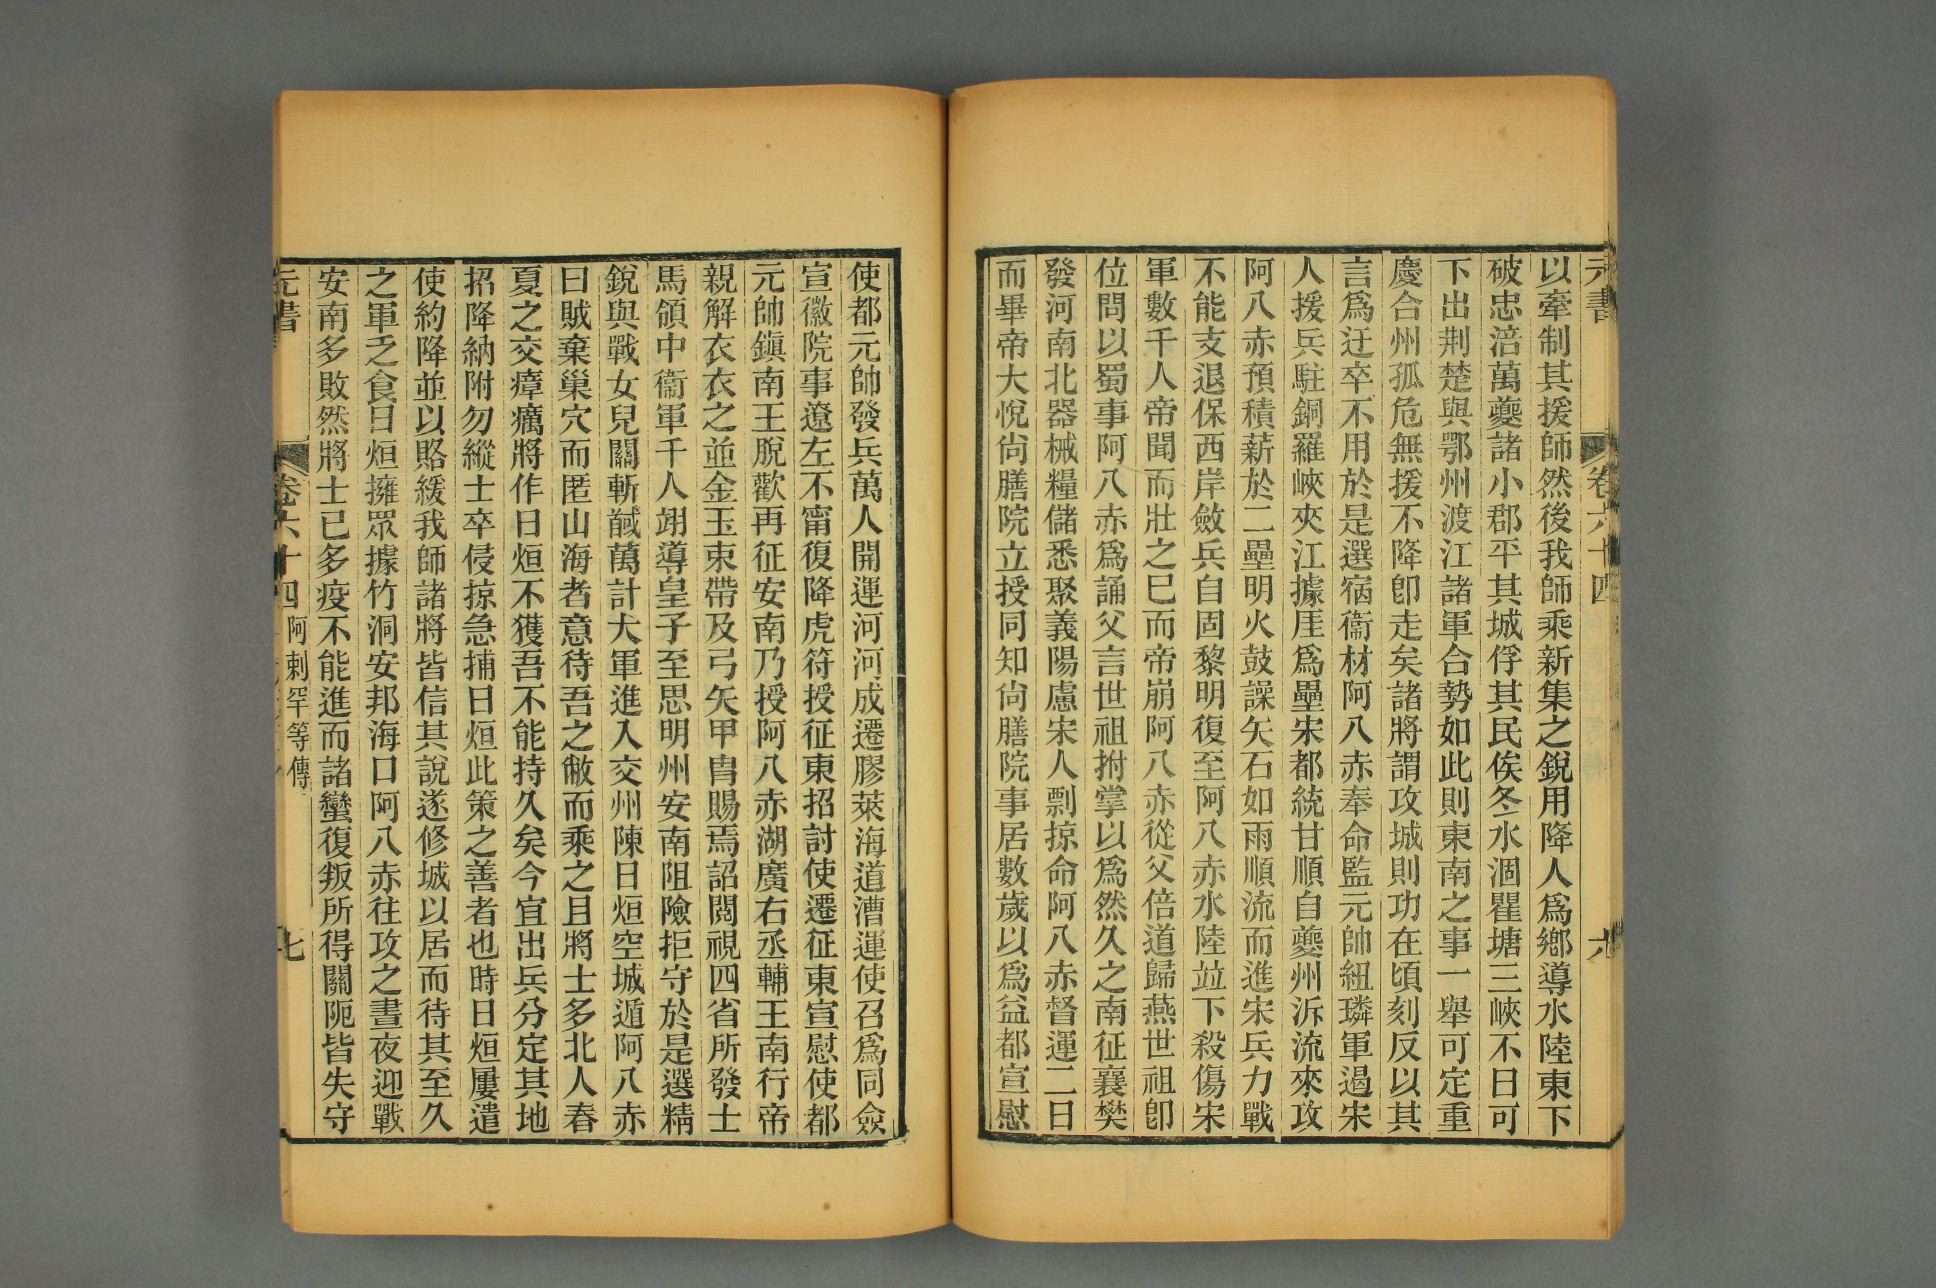 元書
卷六十四
六
以牽制其援師然後我師乘新集之銳用降人爲鄉導水陸東下
破忠涪萬夔諸小郡平其城俘其民俟冬水涸瞿塘三峽不日可
下出荆楚與鄂州渡江諸軍合勢如此則東南之事一舉可定重
慶合州孤危無援不降卽走矣諸將謂攻城則功在頃刻反以其
言爲迂卒不用於是選宿衞材阿八赤奉命監元帥紐璘軍遏宋
人援兵駐銅羅峽夾江據厓爲壘宋都統甘順自夔州泝流來攻
阿八赤預積薪於二壘明火鼓譟矢石如雨順流而進宋兵力戰
不能支退保西岸斂兵自固黎明復至阿八赤水陸竝下殺傷宋
軍數千人帝聞而壯之巳而帝崩阿八赤從父倍道歸燕世祖卽
位問以蜀事阿八赤爲誦父言世祖拊掌以爲然久之南征襄樊
發河南北器械糧儲悉聚義陽慮宋人剽掠命阿八赤督運二日
而畢帝大悅尙膳院立授同知尙膳院事居數歲以爲益都宣慰
使都元帥發兵萬人開運河河成遷膠萊海道漕運使召爲同僉
宣徽院事遼左不甯復降虎符授征東招討使遷征東宣慰使都
元帥鎮南王脫歡再征安南乃授阿八赤湖廣右丞輔王南行帝
親解衣衣之並金玉束帶及弓矢甲冑賜焉詔閱視四省所發士
馬領中衞軍千人翊導皇子至思明州安南阻險拒守於是選精
銳與戰女兒關斬馘萬計大軍進入交州陳日烜空城遁阿八赤
曰賊棄巢穴而匿山海者意待吾之敝而乘之且將士多北人春
夏之交瘴癘將作日烜不獲吾不能持久矣今宜出兵分定其地
招降納附勿縱士卒侵掠急捕日烜此策之善者也時日烜屢遣
使約降並以賂緩我師諸將皆信其說遂修城以居而待其至久
之軍乏食日烜擁眾據竹洞安邦海口阿八赤往攻之晝夜迎戰
安南多敗然將士已多疫不能進而諸蠻復叛所得關阨皆失守
元書
卷六十四
阿剌罕等傳
七